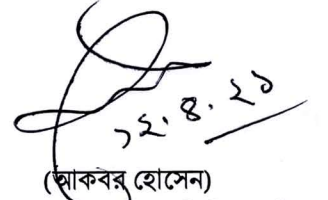 ১২.৪.২১
(আকবর হোসেন)